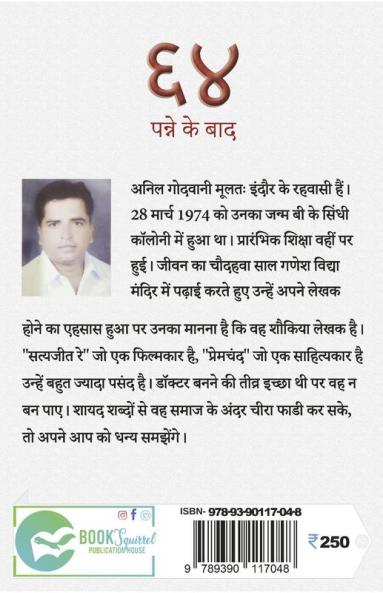 ६४
पन्ने के बाद
अनिल गोदवानी मूलतः इंदौर के रहवासी हैं।
28 मार्च 1974 को उनका जन्म बी के सिंधी
कॉलोनी में हुआ था। प्रारंभिक शिक्षा वहीं पर
हुई। जीवन का चौदहवा साल गणेश विद्या
मंदिर में पढ़ाई करते हुए उन्हें अपने लेखक
होने का एहसास हुआ पर उनका मानना है कि वह शौकिया लेखक है।
"सत्यजीत रे" जो एक फिल्मकार है, "प्रेमचंद" जो एक साहित्यकार है
उन्हें बहुत ज्यादा पसंद है। डॉक्टर बनने की तीव्र इच्छा थी पर वह न
बन पाए। शायद शब्दों से वह समाज के अंदर चीरा फाडी कर सके,
तो अपने आप को धन्य समझेंगे।
BOOK Squirrel
PUBLICATION HOUSE
ISBN- 978-93-90117-04-8
9 789390 117048
₹250